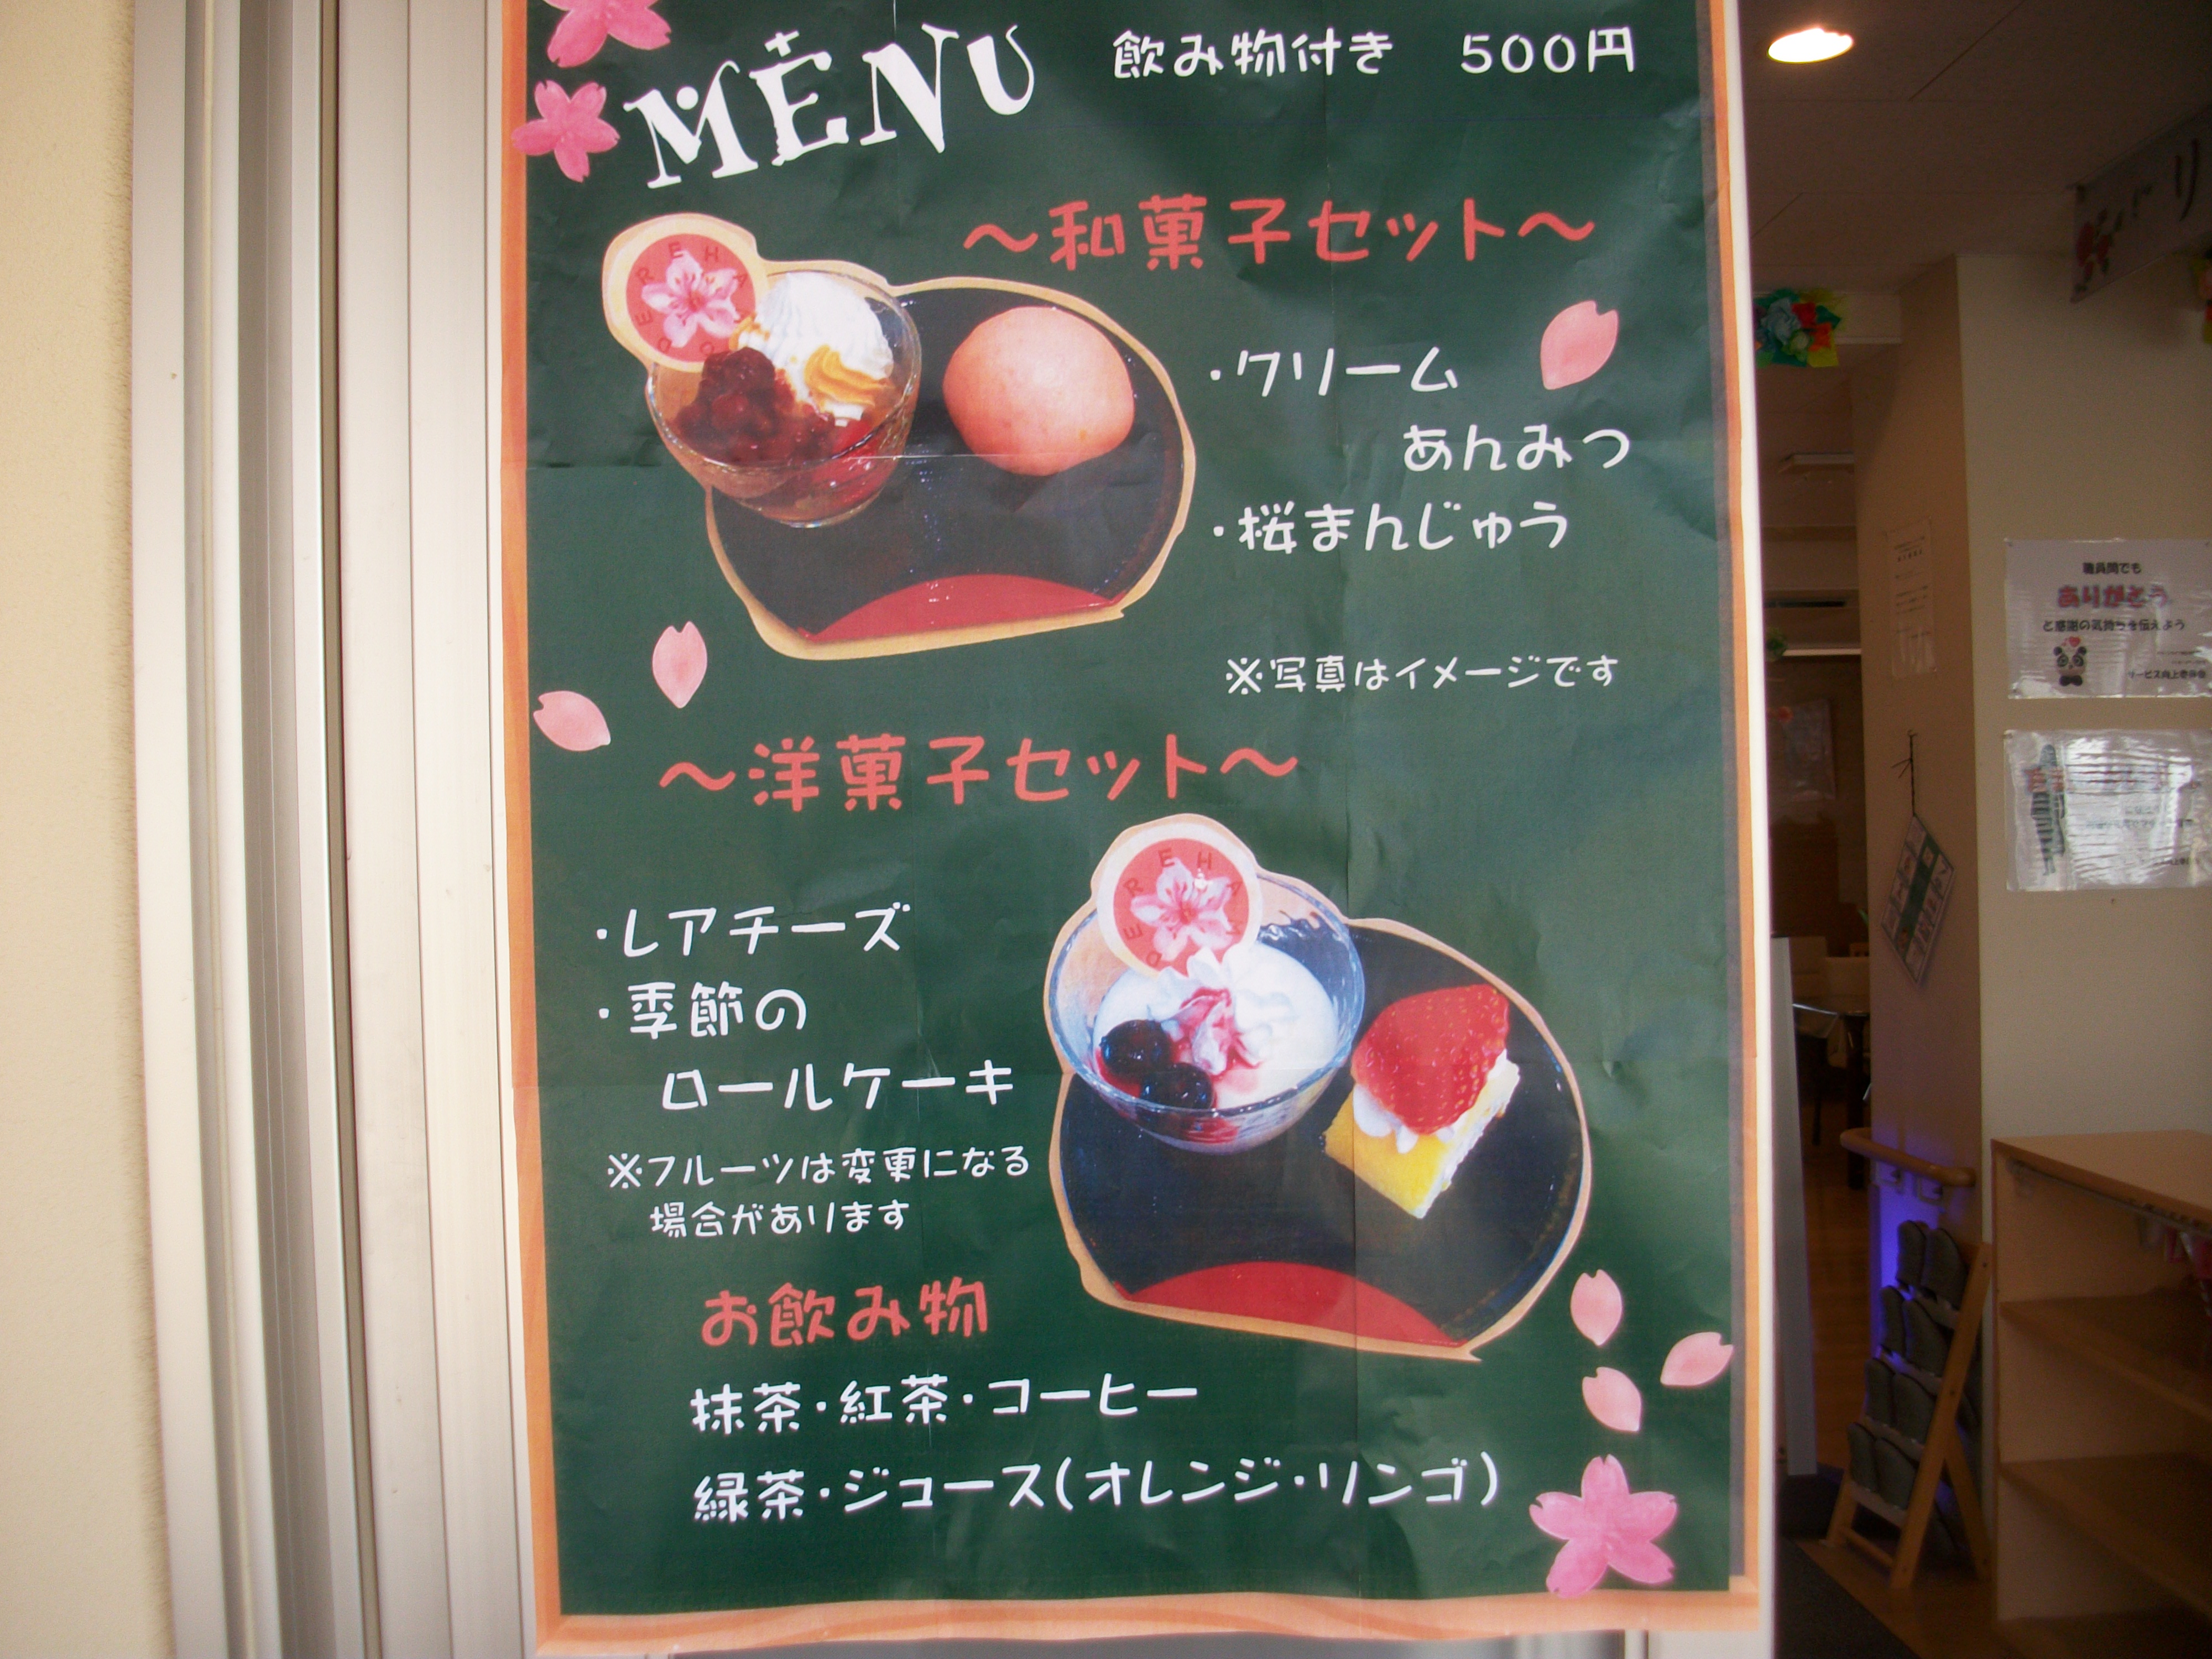 MENU
飲み物付き 500円
～和菓子セット～
・クリーム
あんみつ
・桜まんじゅう
※写真はイメージです
～洋菓子セット～
・レアチーズ
・季節の
ロールケーキ
※フルーツは変更になる
場合があります
お飲み物
抹茶・紅茶・コーヒー
緑茶・ジュース(オレンジ・リンゴ)
職員間でも
ありがとう
と感謝の気持ちを伝えよう